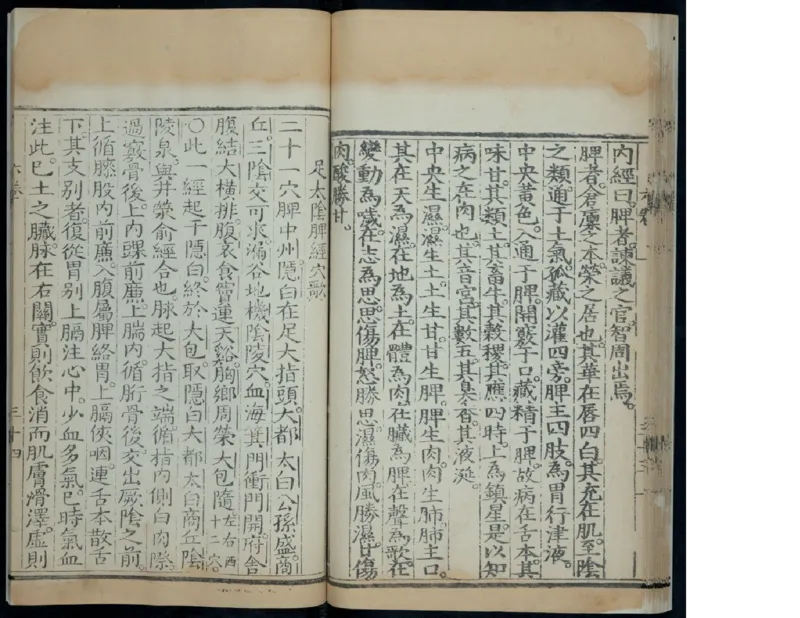 內經曰。脾者。諫議之官。智周出焉。
脾者。倉廩之本。榮之居也。其華在唇四白。其充在肌。至陰
之類。通于土氣。孤藏以灌四旁。脾主四肢。為胃行津液。
中央黃色。入通于脾。開竅于口。藏精于脾。故病在舌本。其
味甘。其類土。其畜牛。其穀稷。其應四時。上為鎮星。是以知
病之在肉也。其音宮。其數五。其臭香。其液涎。
中央生濕。濕生土。土生甘。甘生脾。脾生肉。肉生肺。脾主口。
其在天為濕。在地為土。在體為肉。在臟為脾。在聲為歌。在
變動為噦。在志為思。思傷脾。怒勝思。濕傷肉。風勝濕。甘傷
肉。酸勝甘。
足太陰脾經穴歌
二十一穴脾中州。隱白在足大指頭。大都太白公孫盛。商
丘三陰交可求。漏谷地機陰陵穴。血海箕門衝門開。府舍
腹結大橫排。腹哀食竇連天谿。胸鄉周榮大包隨左右四十二穴。
〇此一經起于隱白。終於大包。取隱白大都太白商丘陰
陵泉。與井滎俞經合也。脉起大指之端。循指內側白肉際。
過竅骨後。上內踝前廉。上腨內。循胻骨後。交出厥陰之前。
上循膝股內前廉。入腹屬脾絡胃。上膈俠咽。連舌本散舌
下。其支別者。復從胃別上膈。注心中。少血多氣。巳時氣血
注此。巳土之臟。脉在右關。實則飲食消而肌膚滑澤。虛則
六卷
三十四